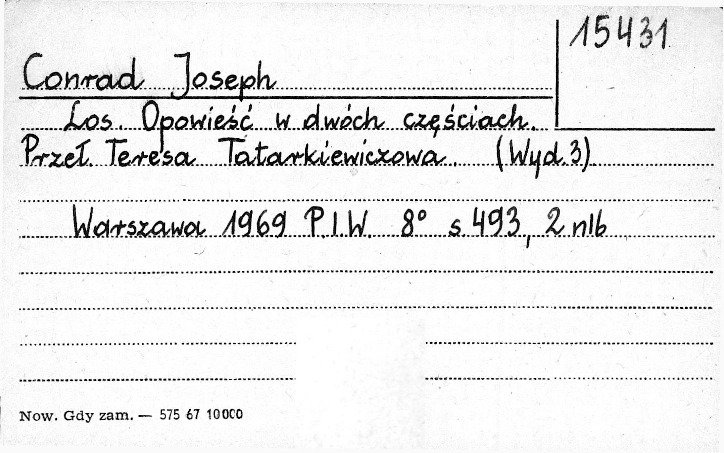 15431
Conrad Joseph
Los. Opowieść w dwóch częściach.
Przeł. Teresa Tatarkiewiczowa. (Wyd. 3)
Warszawa 1969 P.I.W. 8° s 493, 2 nlb
Now. Gdy zam. — 575 67 10000